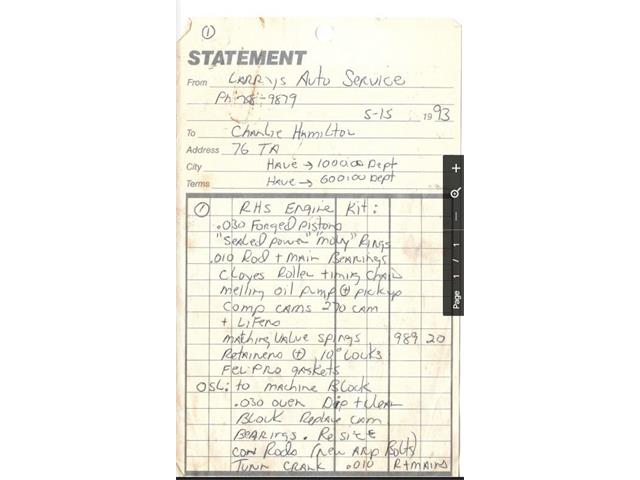 1
STATEMENT
From LARRYS Auto Service
Ph 768-9879
5-15 1993
To Charlie Hamilton
Address 76 TA
City HAVE → 1000.00 Dept
Terms HAVE → 600.00 Dept
1 RHS Engine Kit:
.030 Forged Pistons
"Sealed power" "moly" Rings
.010 Rod + main Bearings
Cloyes Roller timing chain
melling oil pump + pickup
Comp cams 270 cam
+ Lifters
mathing valve spings 989 20
Retainers + 10° Locks
Fel-Pro gaskets
OSL: to machine Block
.030 over Dip + clean
Block Replace cam
Bearings. Resize
con Rods (new ARP Bolts)
Turn crank .010 R+mains
Page 1 / 1